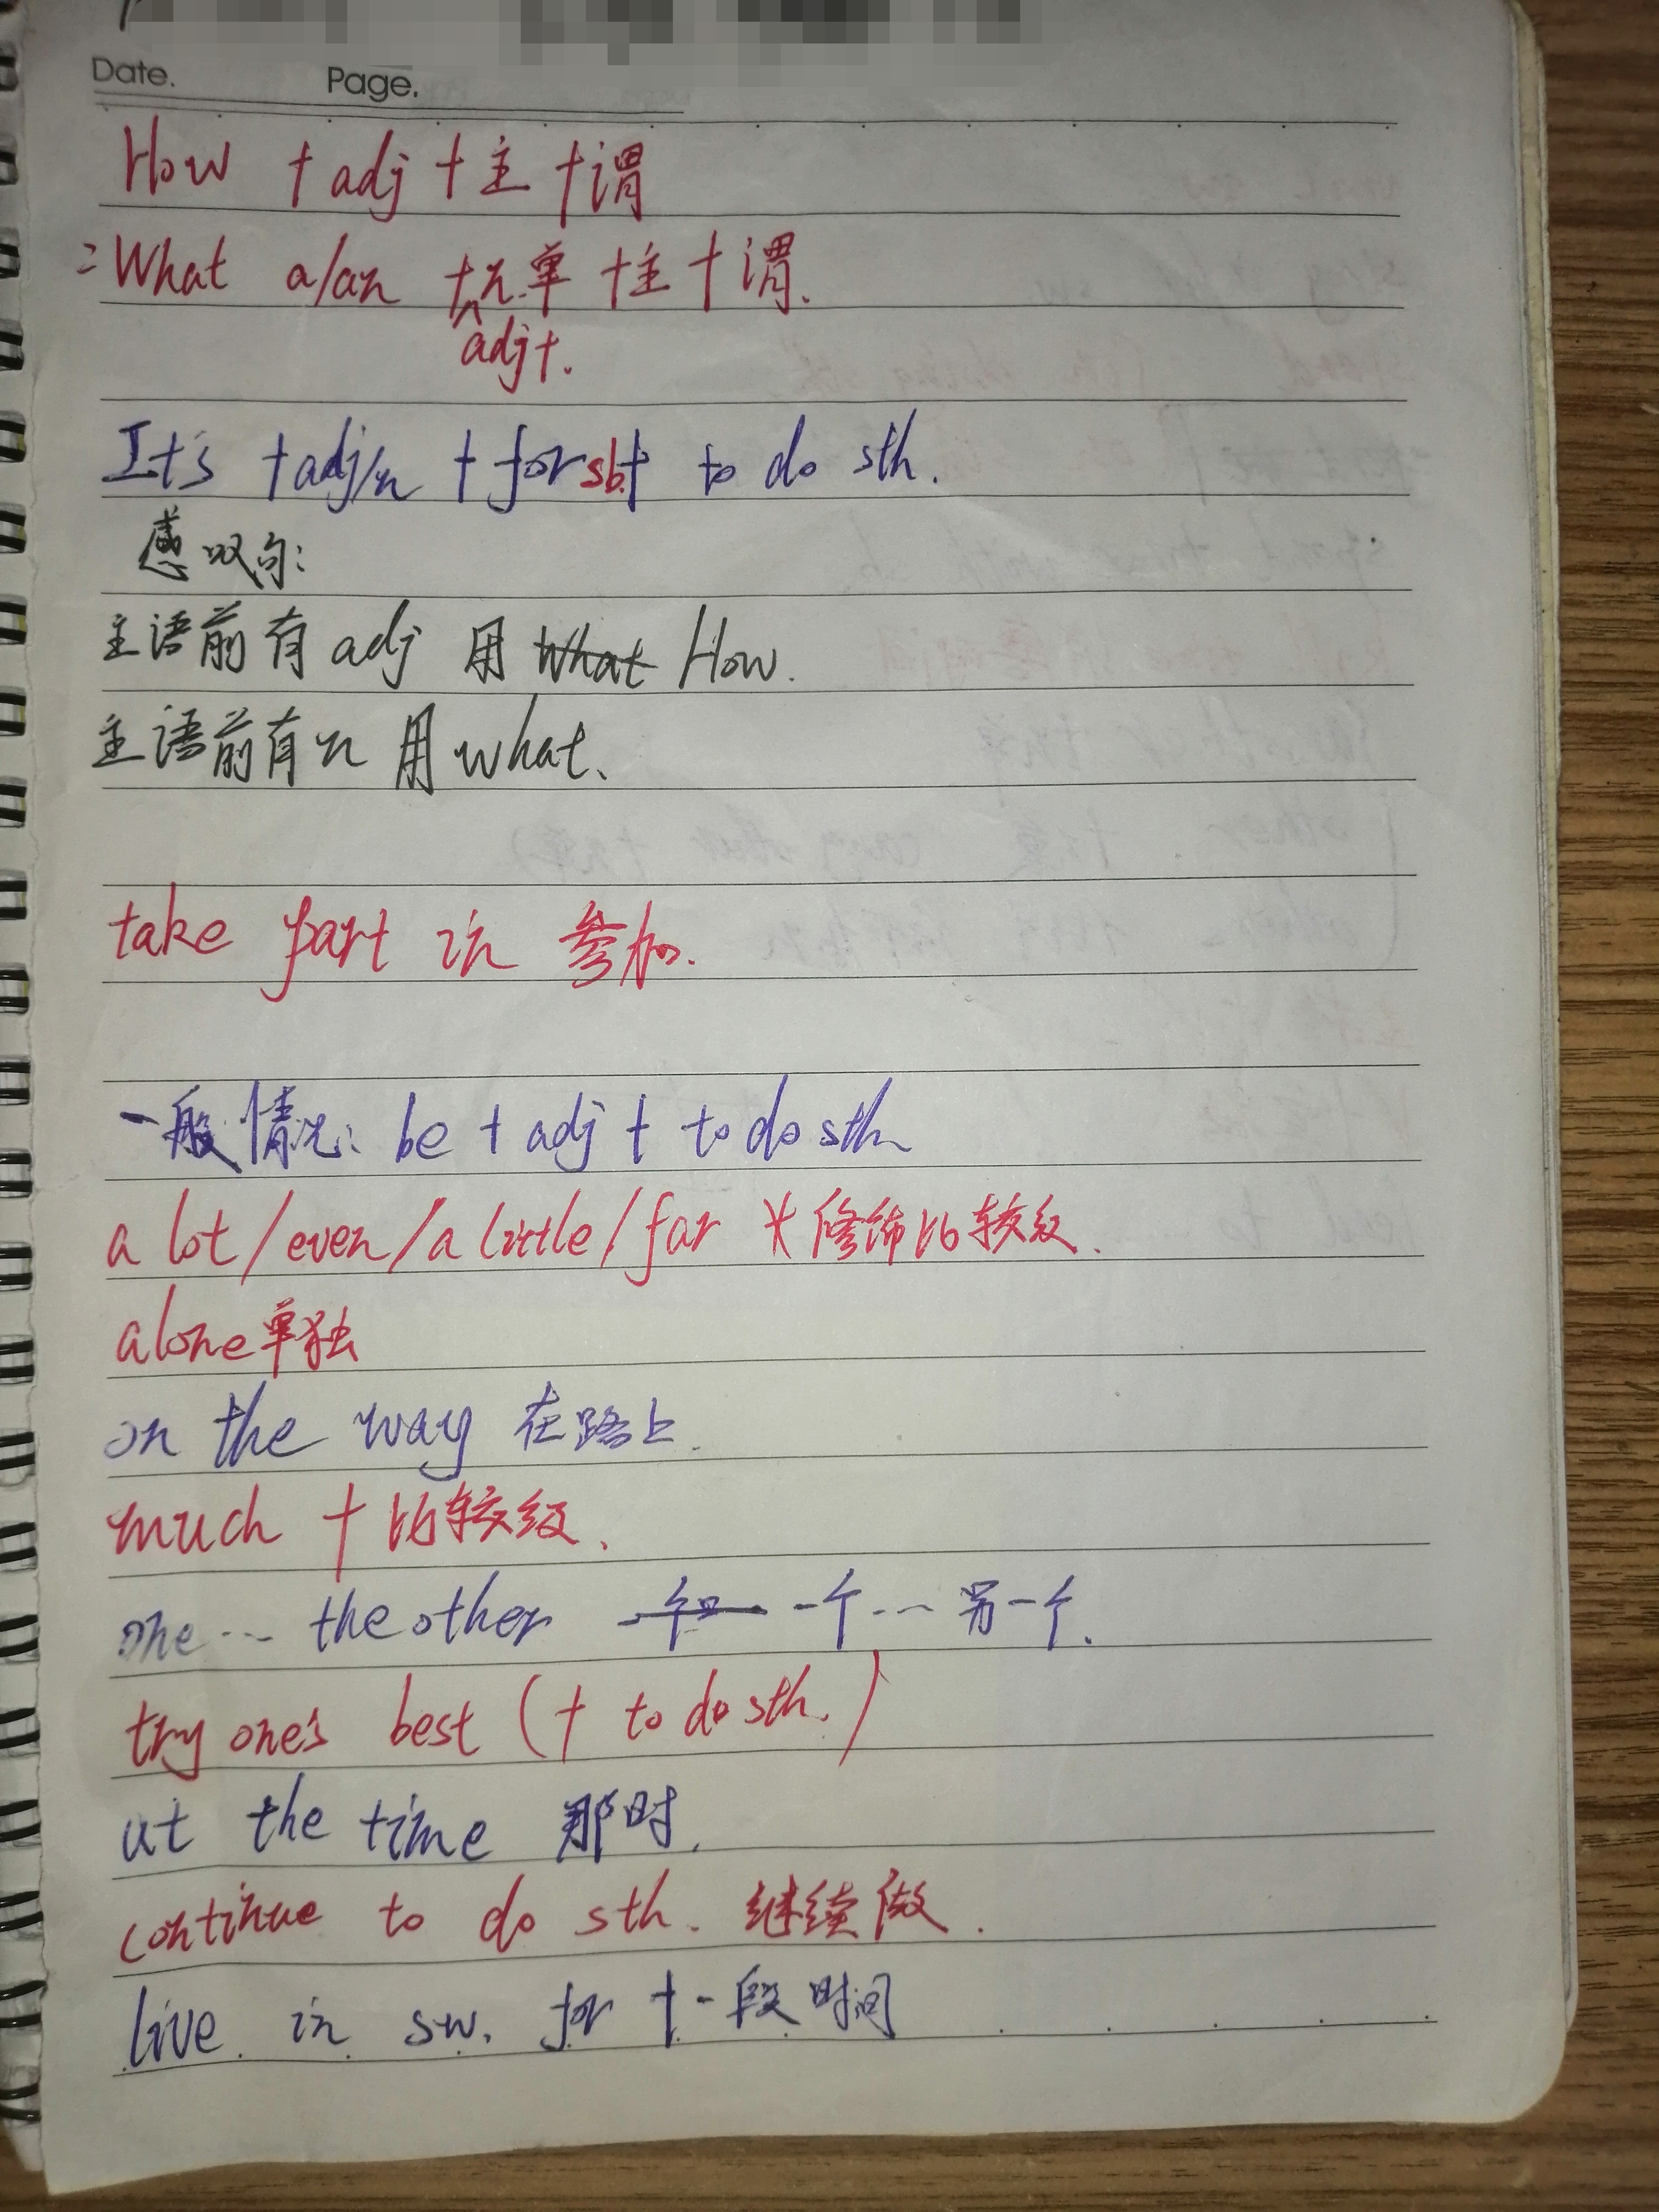 Date. Page.
How + adj + 主 + 谓
=What a/an + n.单 + 主 + 谓.
adj+.
It's + adj/n + for sb.+ to do sth.
感叹句:
主语前有 adj 用 What How.
主语前有 n 用 what.
take part in 参加.
一般情况: be + adj + to do sth
a lot/even/a little/far *修饰比较级.
alone单独
on the way 在路上.
much + 比较级.
one… the other 一个… 另一个.
try one's best (+ to do sth.)
at the time 那时.
continue to do sth. 继续做.
live in sw. for + 一段时间